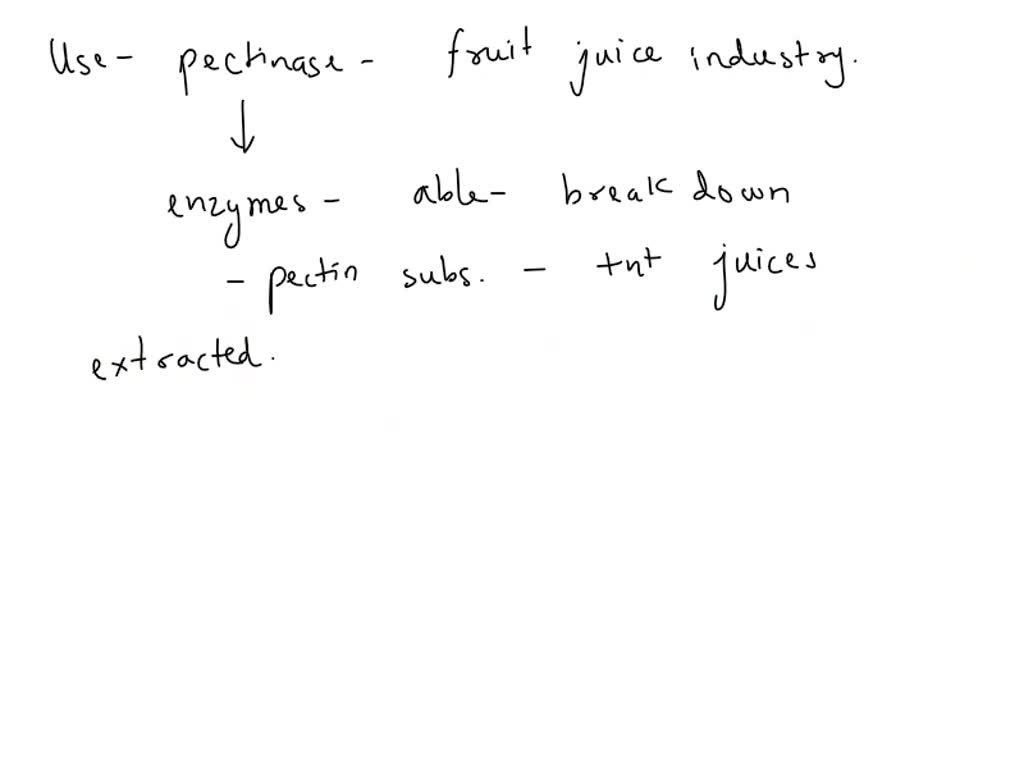 Use - pectinase - fruit juice industry.
↓
enzymes - able - break down
- pectin subs. - tnt juices
extracted.